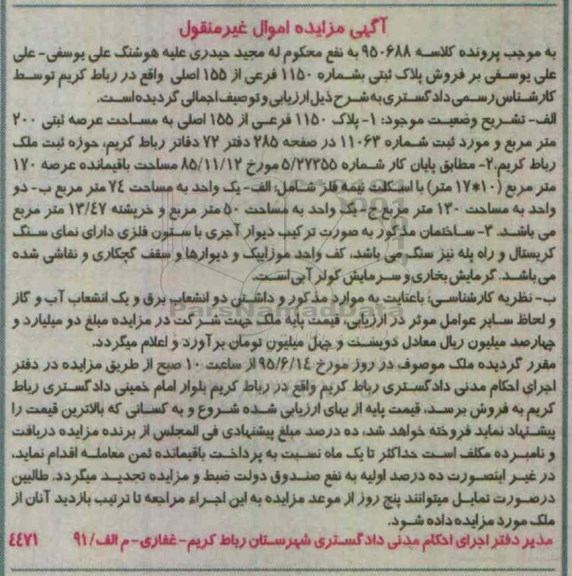 آگهی مزایده اموال غیرمنقول
به موجب پرونده کلاسه ۹۵۰۶۸۸ به نفع محکوم له مجید حیدری علیه هوشنگ علی یوسفی- علی
علی یوسفی بر فروش پلاک ثبتی بشماره ۱۱۵۰ فرعی از ۱۵۵ اصلی واقع در رباط کریم توسط
کارشناس رسمی دادگستری به شرح ذیل ارزیابی و توصیف اجمالی گردیده است.
الف- تشریح وضعیت موجود: ۱- پلاک ۱۱۵۰ فرعی از ۱۵۵ اصلی به مساحت عرصه ثبتی ۲۰۰
متر مربع و مورد ثبت شماره ۱۱۰۶۳ در صفحه ۲۸۵ دفتر ۷۲ دفاتر رباط کریم، حوزه ثبت ملک
رباط کریم.۲- مطابق پایان کار شماره ۵/۲۷۳۵۵ مورخ ۸۵/۱۱/۱۲ مساحت باقیمانده عرصه ۱۷۰
متر مربع (۱۰*۱۷ متر) با اسکلت نیمه فلز شامل: الف- یک واحد به مساحت ۷۴ متر مربع ب- دو
واحد به مساحت ۱۳۰ متر مربع ج- یک واحد به مساحت ۵۰ متر مربع و خرپشته ۱۳/۴۷ متر مربع
می باشد. ۳- ساختمان مذکور به صورت ترکیب دیوار آجری با ستون فلزی دارای نمای سنگ
کریستال و راه پله نیز سنگ می باشد، کف واحد موزاییک و دیوارها و سقف گچکاری و نقاشی شده
می باشد. گرمایش بخاری و سرمایش کولر آبی است.
ب- نظریه کارشناسی: باعنایت به موارد مذکور و داشتن دو انشعاب برق و یک انشعاب آب و گاز
و لحاظ سایر عوامل موثر در ارزیابی، قیمت پایه ملک جهت شرکت در مزایده مبلغ دو میلیارد و
چهارصد میلیون ریال معادل دویست و چهل میلیون تومان برآورد و اعلام میگردد.
مقرر گردیده ملک موصوف در روز مورخ ۹۵/۶/۱۴ از ساعت ۱۰ صبح از طریق مزایده در دفتر
اجرای احکام مدنی دادگستری رباط کریم واقع در رباط کریم بلوار امام خمینی دادگستری رباط
کریم به فروش برسد، قیمت پایه از بهای ارزیابی شده شروع و به کسانی که بالاترین قیمت را
پیشنهاد نماید فروخته خواهد شد، ده درصد مبلغ پیشنهادی فی المجلس از برنده مزایده دریافت
و نامبرده مکلف است حداکثر تا یک ماه نسبت به پرداخت باقیمانده ثمن معامله اقدام نماید،
در غیر اینصورت ده درصد اولیه به نفع صندوق دولت ضبط و مزایده تجدید میگردد. طالبین
درصورت تمایل میتوانند پنج روز از موعد مزایده به این اجراء مراجعه تا ترتیب بازدید آنان از
ملک مورد مزایده داده شود.
مدیر دفتر اجرای احکام مدنی دادگستری شهرستان رباط کریم- غفاری- م الف/۹۱ ۴۴۷۱
ParsNamadData